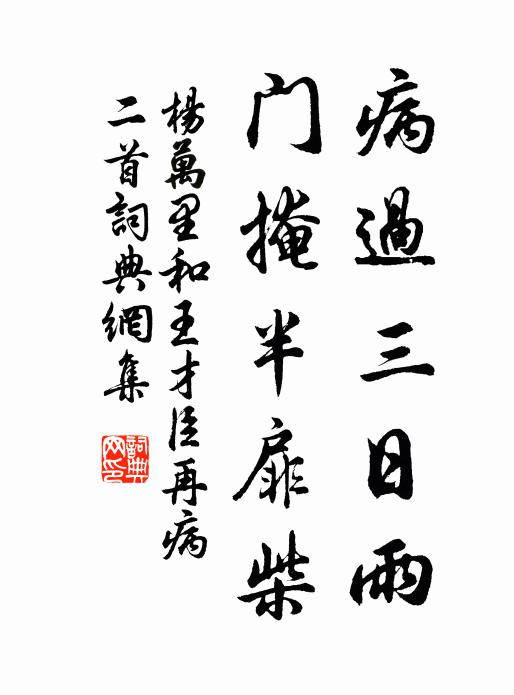 病過三日雨
門掩半扉柴
楊萬里和王才臣再病
二首詞典網集
詞典
网印